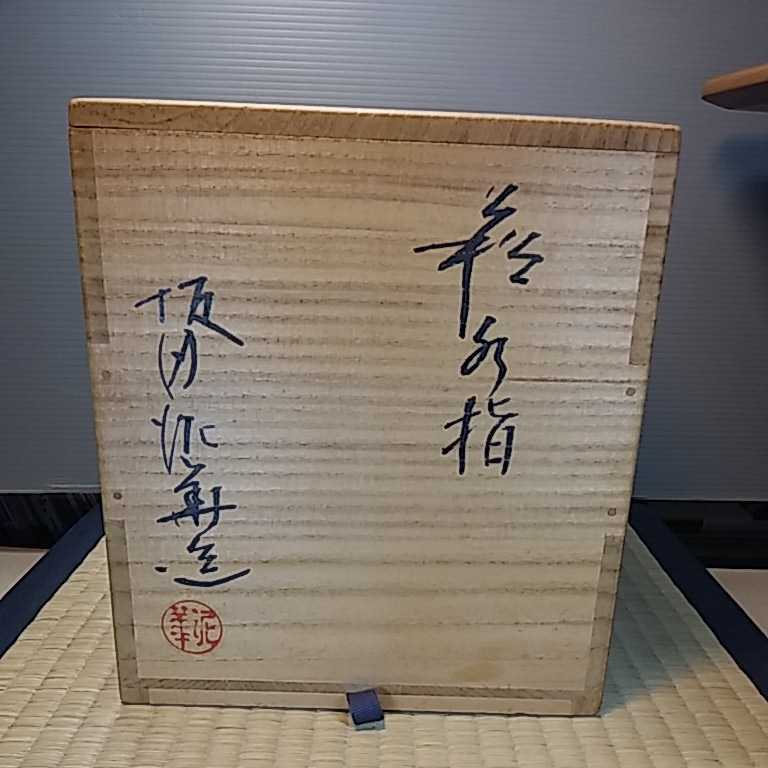 萩水指
坂田泥華造
泥華